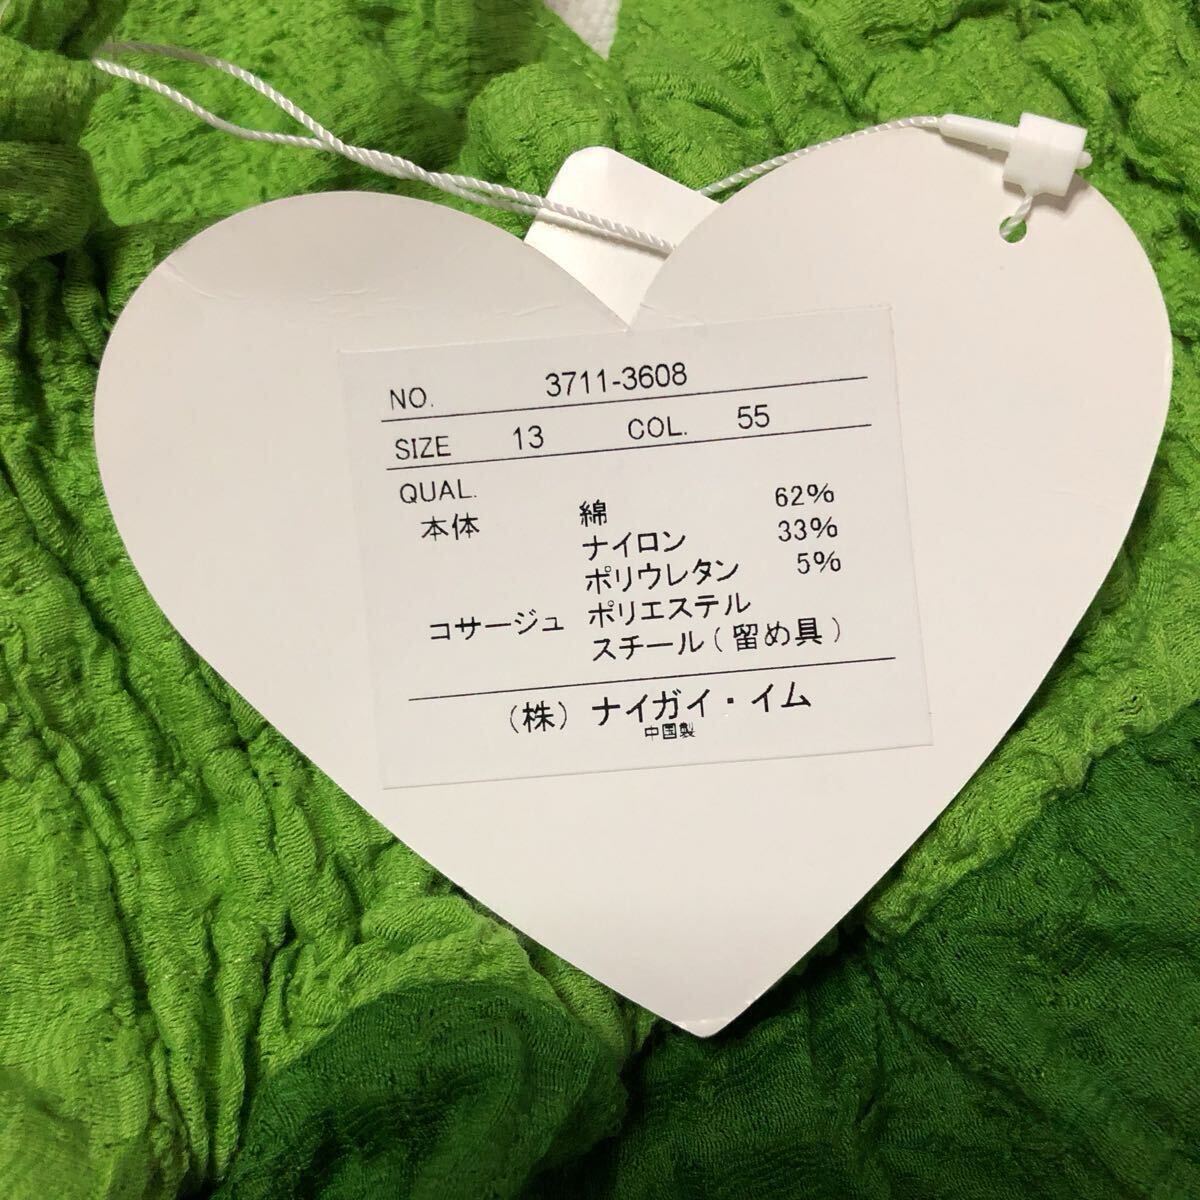 NO. 3711-3608
SIZE 13 COL. 55
QUAL.
本体 綿 62%
ナイロン 33%
ポリウレタン 5%
コサージュ ポリエステル
スチール(留め具)
(株)ナイガイ・イム
中国製